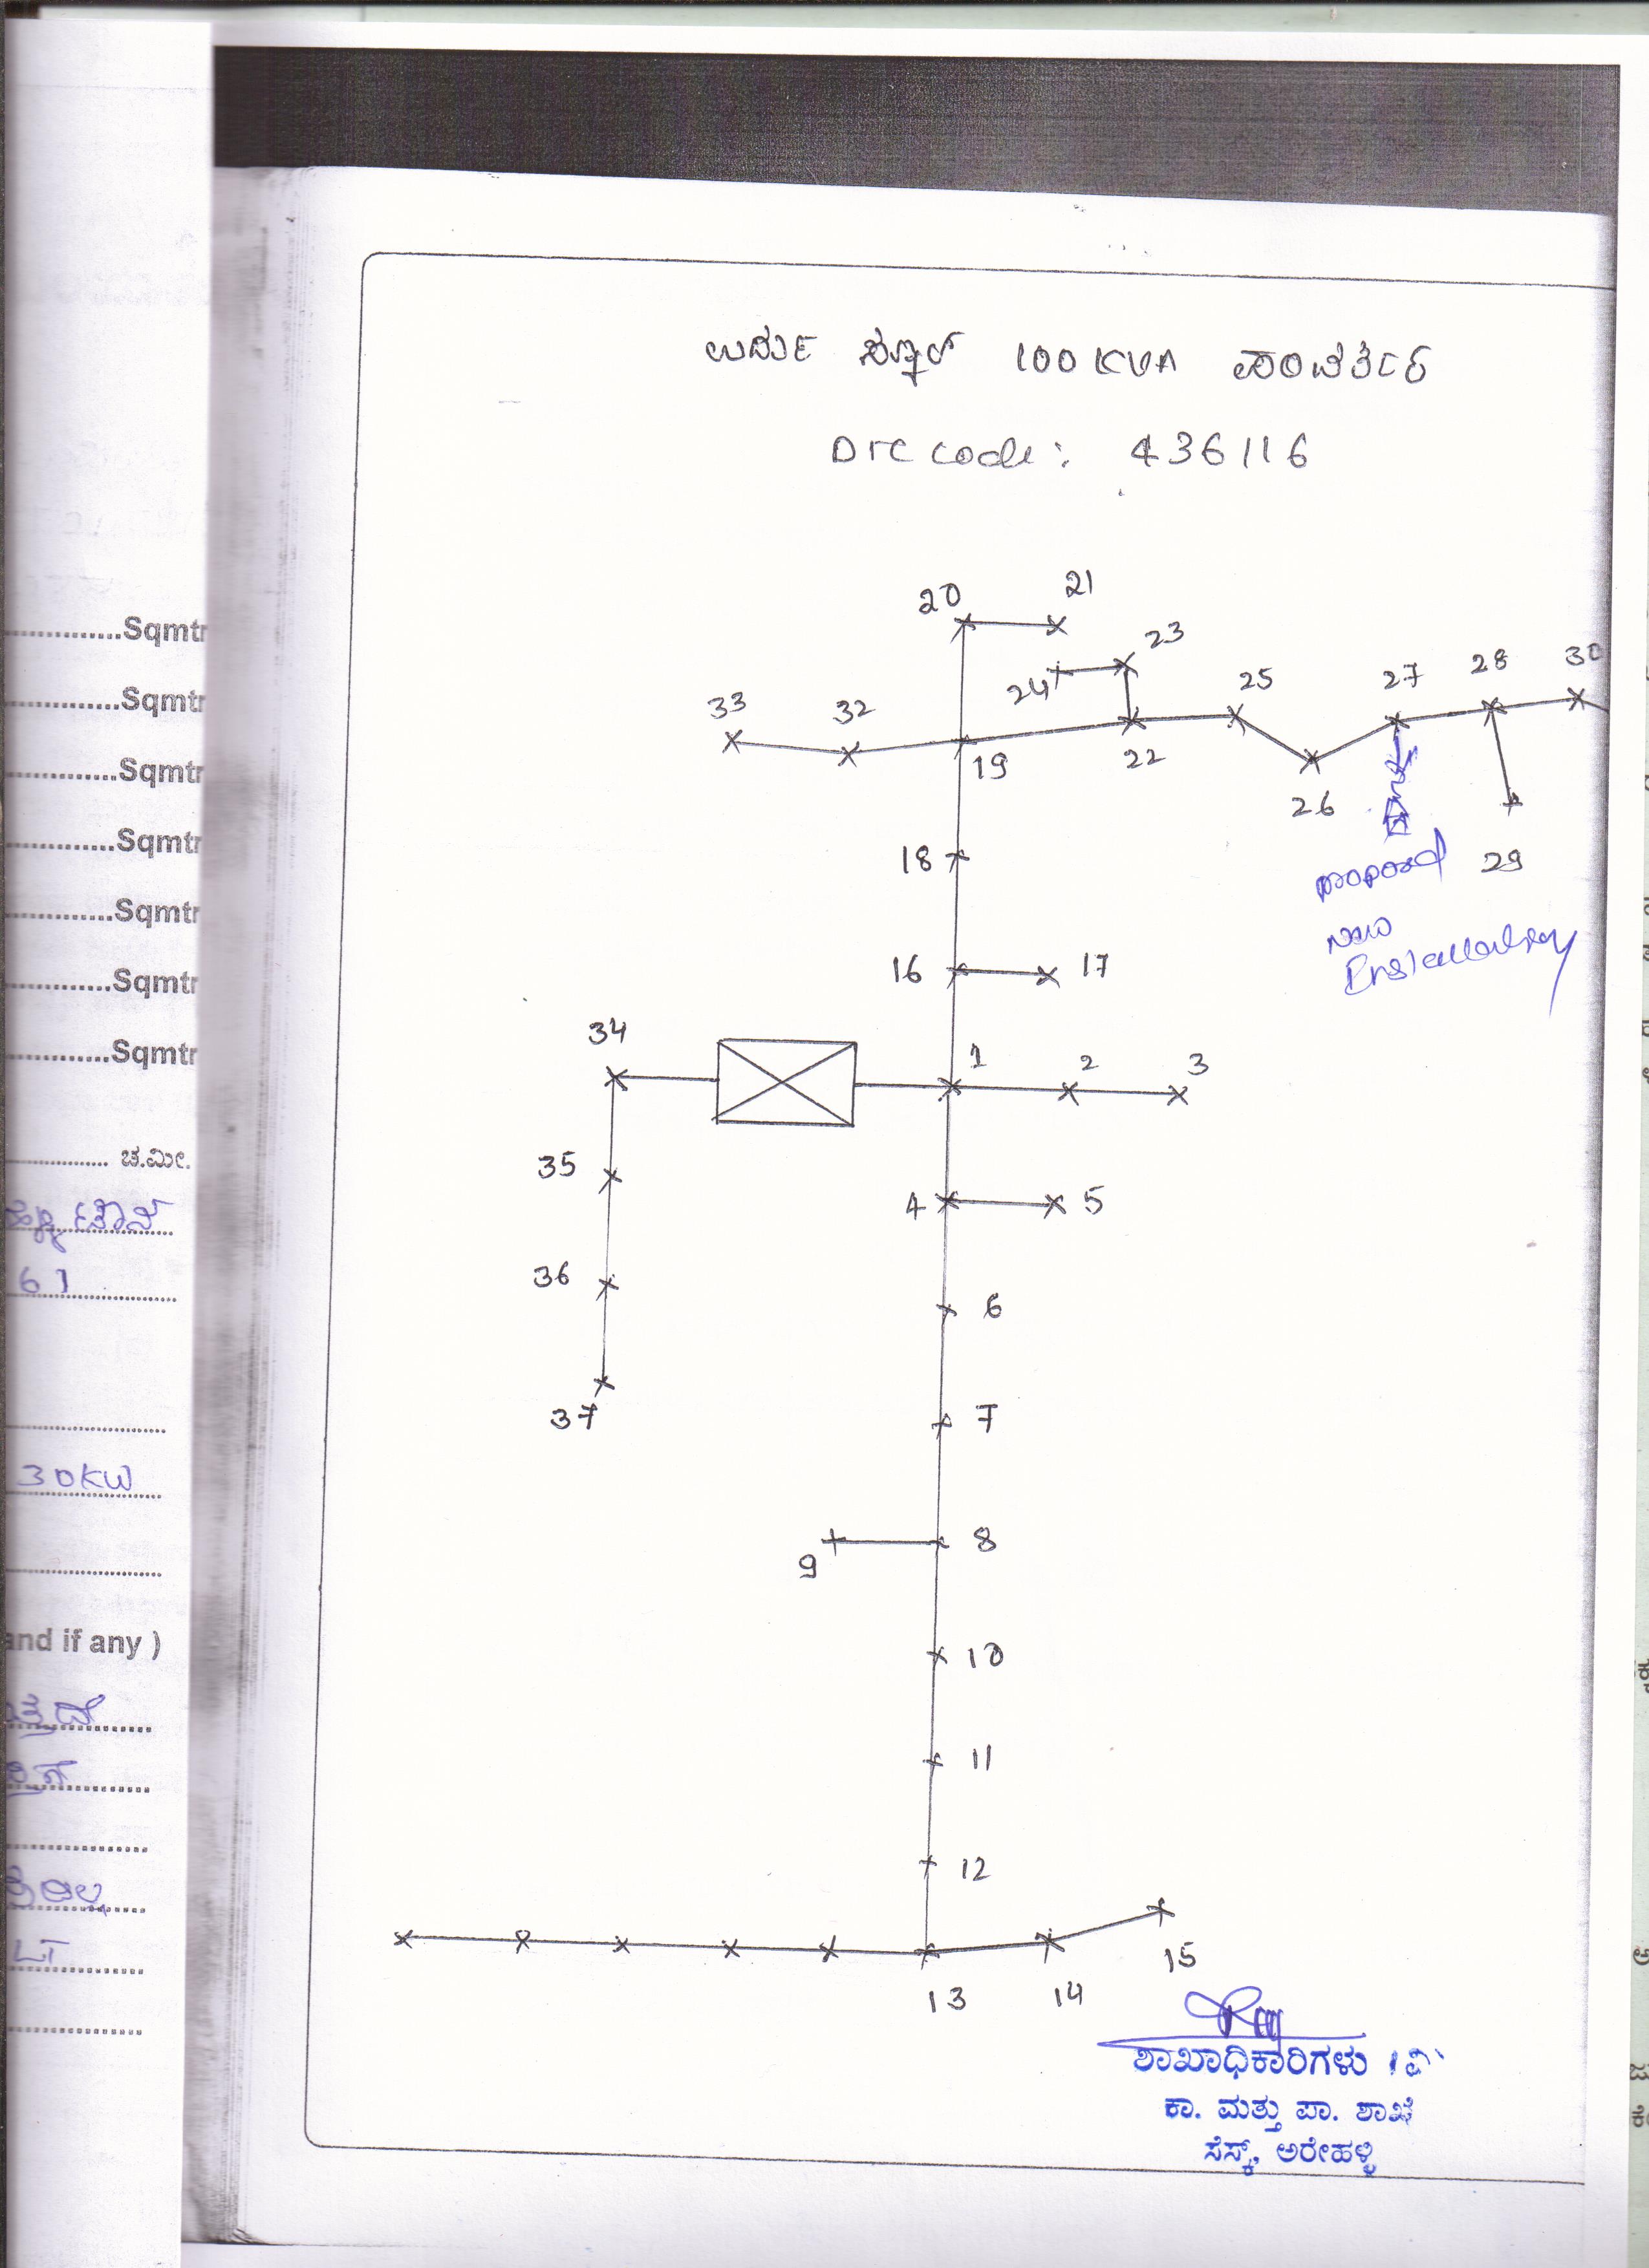 ಉರ್ದು ಸ್ಕೂಲ್ 100 KVA ಪರಿವರ್ತಕ
DTC Code: 436116
20 21
23
24
33 32 25 27 28 30
19 22
26
18
29
proposed
new
Installation
16 17
34
1 2 3
35
4 5
36
6
37
7
8
9
10
11
12
13 14 15
ಶಾಖಾಧಿಕಾರಿಗಳು
ಕಾ. ಮತ್ತು ಪಾ. ಶಾಖೆ
ಸೆಸ್ಕ್, ಅರೇಹಳ್ಳಿ
..............Sqmtr
..............Sqmtr
..............Sqmtr
..............Sqmtr
..............Sqmtr
..............Sqmtr
..............Sqmtr
.............. ಚ.ಮೀ.
61
30KW
and if any )